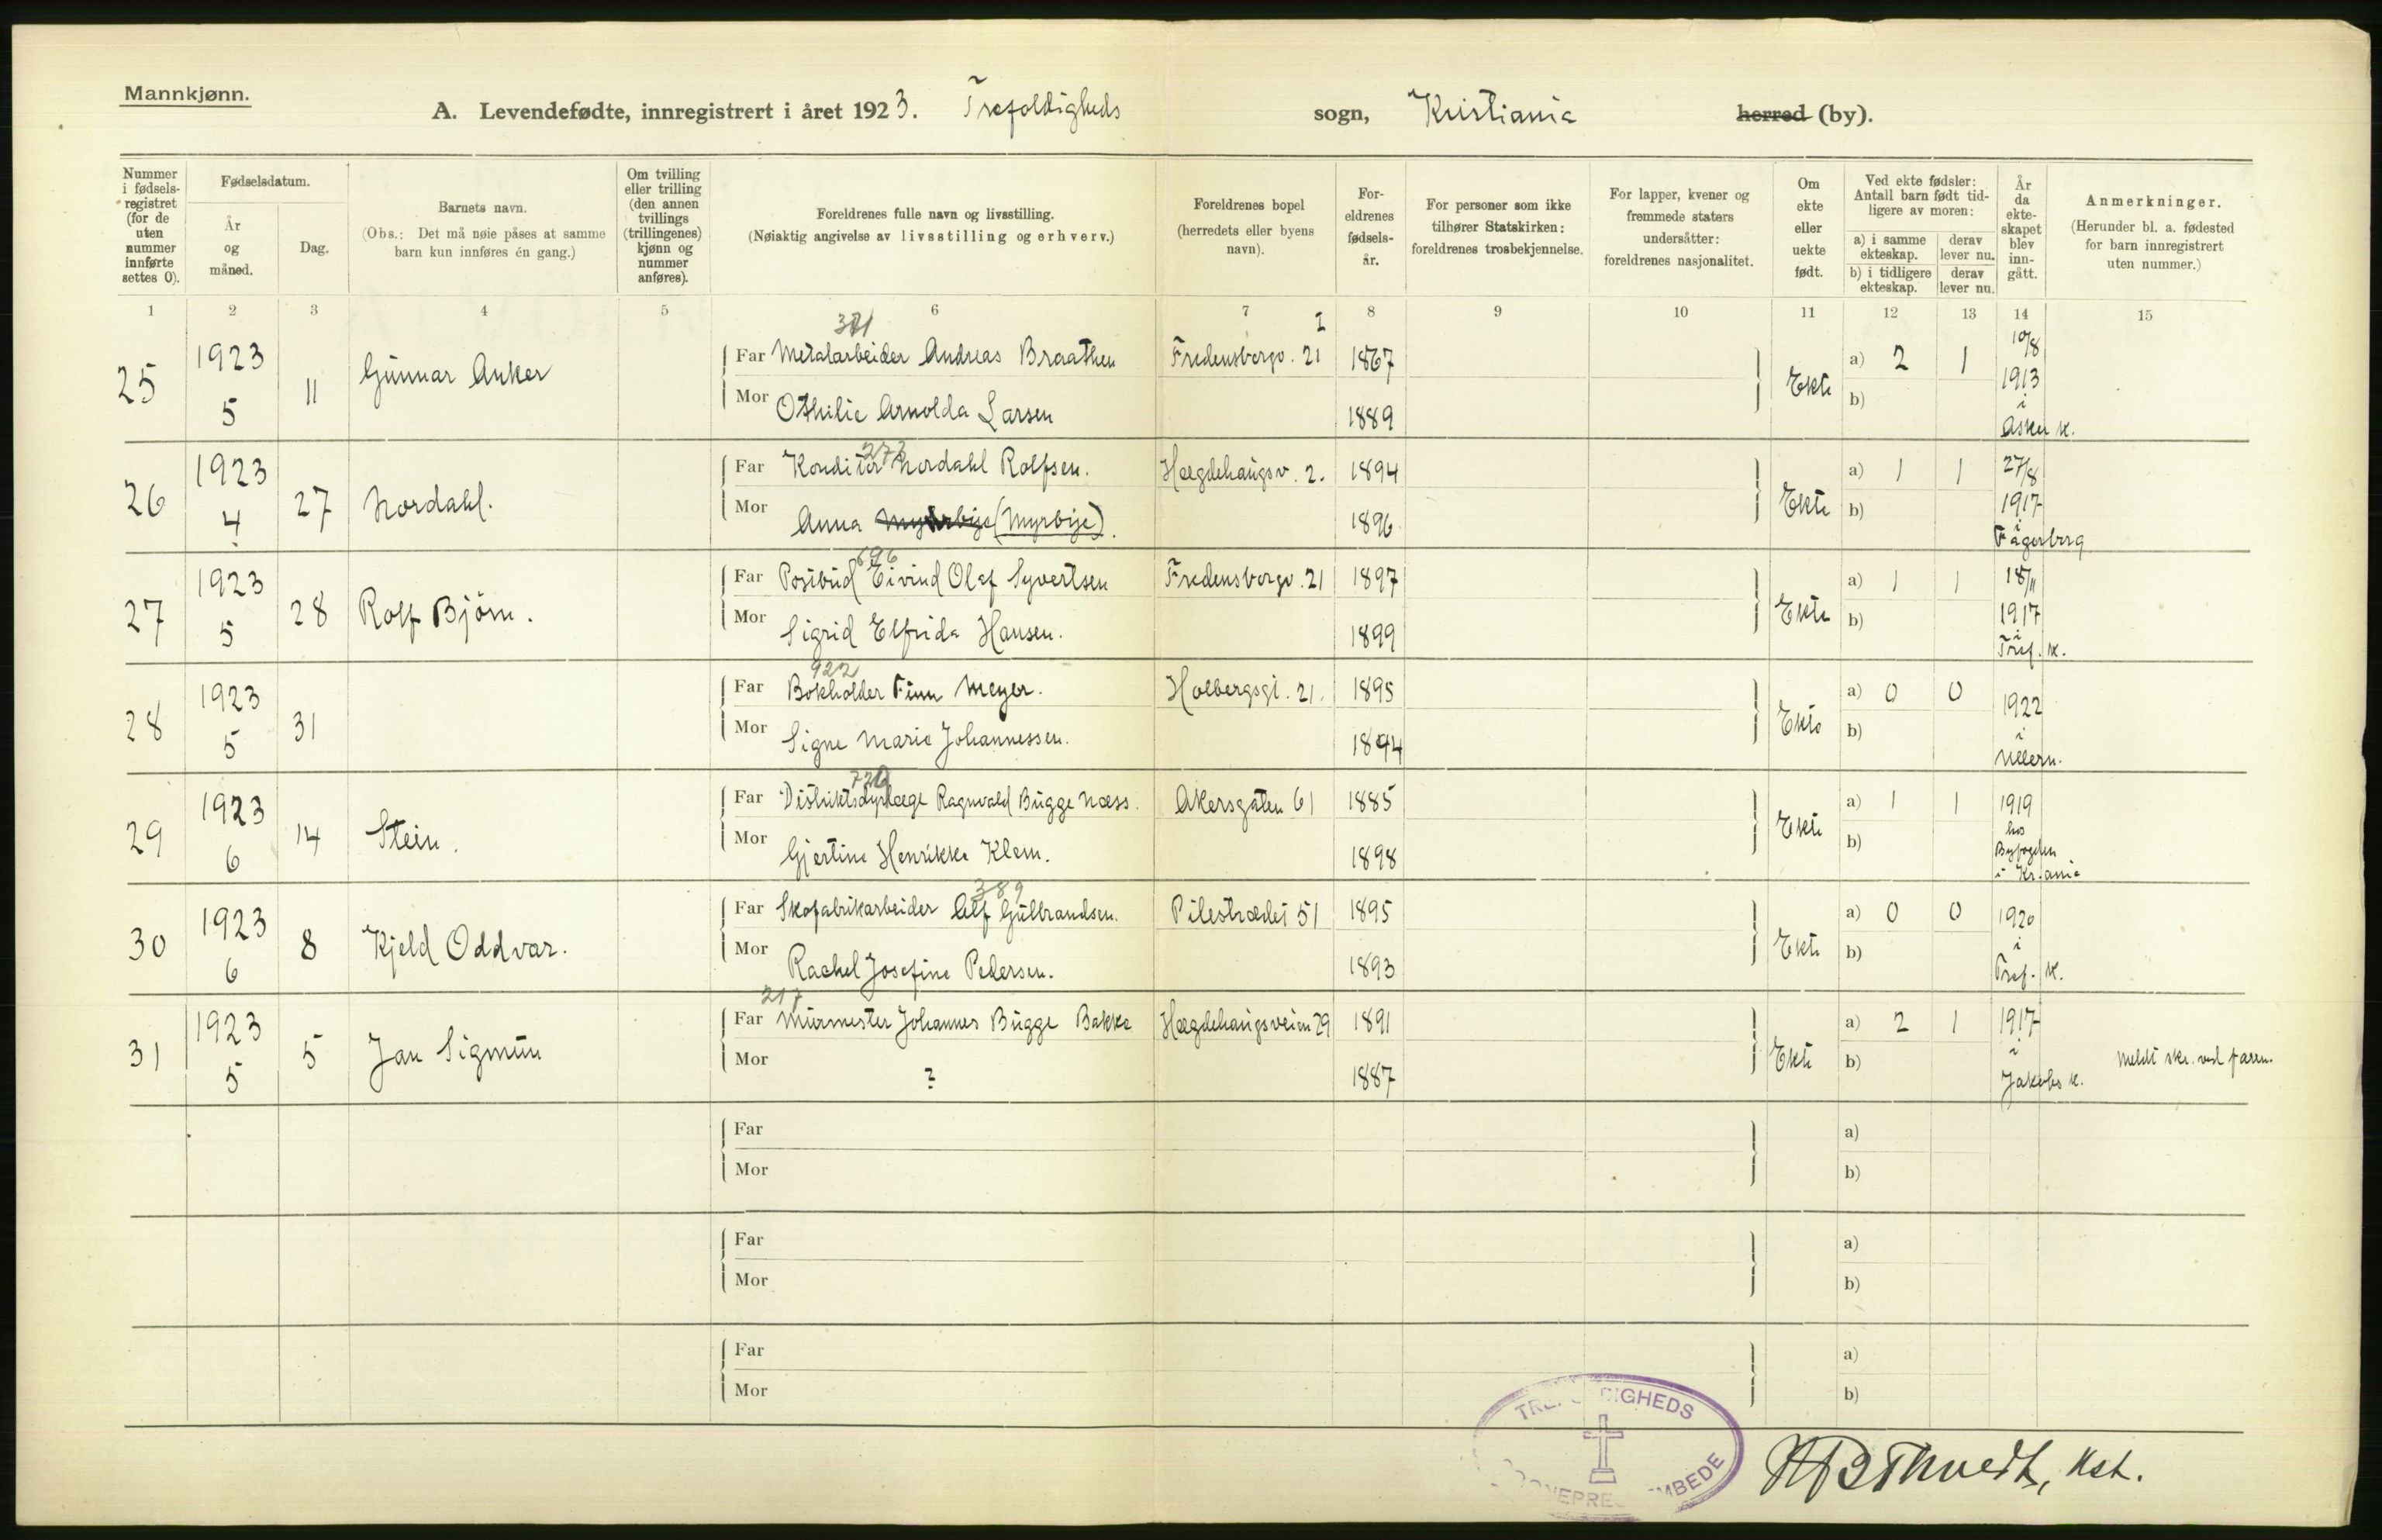 Mannkjønn.
A. Levendefødte, innregistrert i året 1923. Trefoldigheds sogn, Kristiania herred (by).
Nummer i fødsels-registret (for de uten nummer innførte settes 0).
Fødselsdatum.
År og måned.
Dag.
Barnets navn.
(Obs.: Det må nøie påses at samme barn kun innføres én gang.)
Om tvilling eller trilling (den annen tvillings (trillingenes) kjønn og nummer anføres).
Foreldrenes fulle navn og livsstilling.
(Nøiaktig angivelse av livsstilling og erhverv.)
Foreldrenes bopel (herredets eller byens navn).
For-eldrenes fødsels-år.
For personer som ikke tilhører Statskirken: foreldrenes trosbekjennelse.
For lapper, kvener og fremmede staters undersåtter: foreldrenes nasjonalitet.
Om ekte eller uekte født.
Ved ekte fødsler: Antall barn født tid-ligere av moren:
a) i samme ekteskap. derav lever nu.
b) i tidligere ekteskap. derav lever nu.
År da ekte-skapet blev inn-gått.
Anmerkninger.
(Herunder bl. a. fødested for barn innregistrert uten nummer.)
1 2 3 4 5 6 7 8 9 10 11 12 13 14 15
25 1923 5 11 Gunnar Anker
Far Metalarbeider Andreas Braathen Fredensborgv. 21 1867
Mor Othilie Arnolda Larsen 1889
Ekte a) 2 1 b) 10/8 1913 i Asker k.
26 1923 4 27 Nordahl.
273
Far Konditor Nordahl Rolfsen. Hægdehaugsv. 2. 1894
Mor Anna (Myrbije). 1896
Ekte a) 1 1 b) 27/8 1917 i Fagerborg
27 1923 5 28 Rolf Bjørn.
696
Far Postbud Eivind Olaf Syvertsen Fredensborgv. 21 1897
Mor Sigrid Elfrida Hansen. 1899
Ekte a) 1 1 b) 18/11 1917 i Tref. k.
28 1923 5 31
922
Far Bokholder Finn Meyer. Holbergsgt. 21. 1895
Mor Signe Marie Johannessen. 1894
Ekte a) 0 0 b) 1922 i Ullern.
29 1923 6 14 Stein.
Far Distriktsdyrlæge Ragnvald Bugge Næss. Akersgaten 61 1885
Mor Gjertine Henrikke Klem. 1898
Ekte a) 1 1 b) 1919 hos Byfogden i Kr.ania
30 1923 6 8 Kjeld Oddvar.
389
Far Skofabrikarbeider Alf Gulbrandsen. Pilestrædet 51 1895
Mor Rachel Josefine Pedersen. 1893
Ekte a) 0 0 b) 1920 i Tref. k.
31 1923 5 5 Jan Sigmun
217
Far Murmester Johannes Bugge Bakke Hægdehaugsveien 29 1891
Mor ? 1887
Ekte a) 2 1 b) 1917 i Jakobs k. Meldt skr. ved faren.
Far a)
Mor b)
Far a)
Mor b)
Far a)
Mor b)